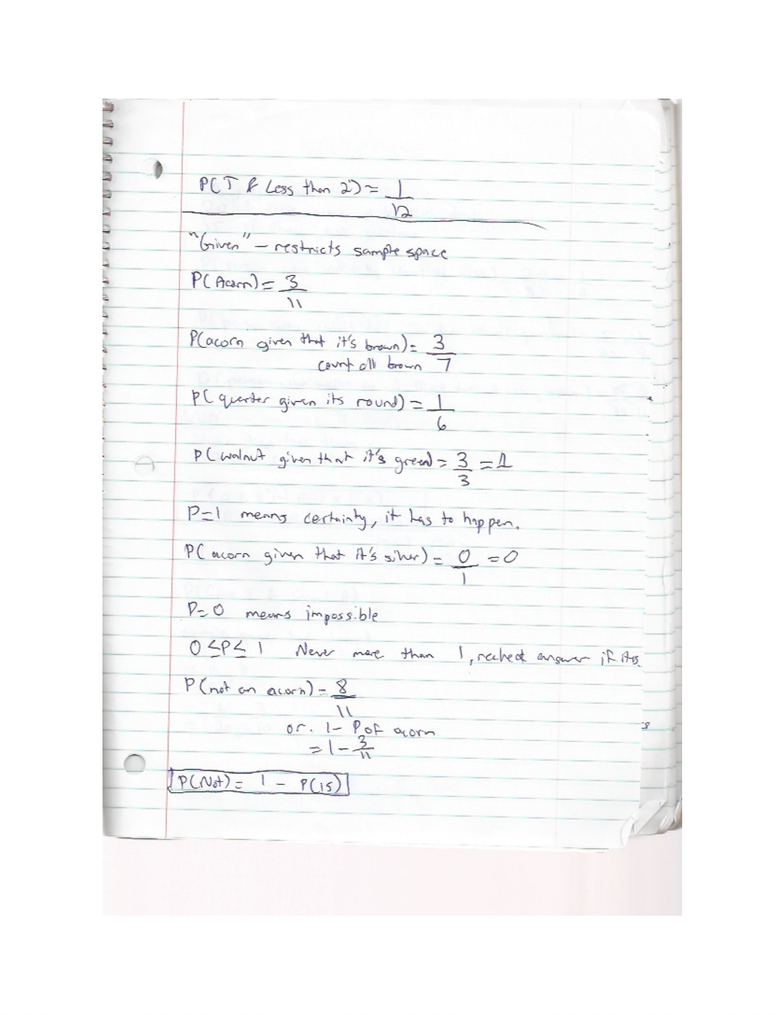 P(T & Less than 2) = 1/12
"Given" – restricts sample space
P(Acorn) = 3/11
P(acorn given that it's brown) = 3/7
count all brown
P(quarter given its round) = 1/6
P(walnut given that it's green) = 3/3 = 1
P=1 means certainty, it has to happen.
P(acorn given that it's silver) = 0/1 = 0
P=0 means impossible
0 ≤ P ≤ 1 Never more than 1, recheck answer if it is
P(not an acorn) = 8/11
or. 1 – P of acorn
= 1 – 3/11
P(Not) = 1 – P(is)